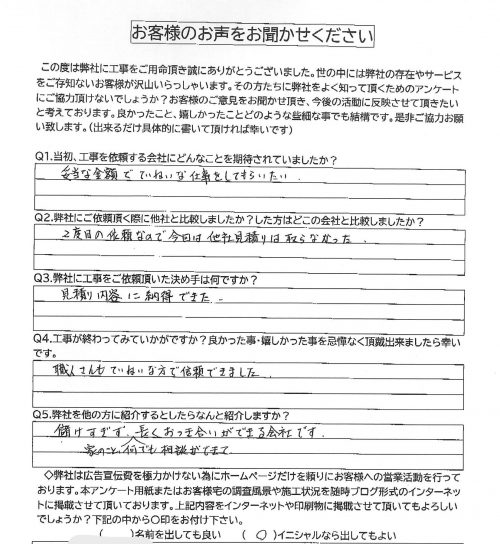 お客様のお声をお聞かせください
この度は弊社に工事をご用命頂き誠にありがとうございました。世の中には弊社の存在やサービス
をご存知ないお客様が沢山いらっしゃいます。その方たちに弊社をよく知って頂くためのアンケート
にご協力頂けないでしょうか？お客様のご意見をお聞かせ頂き、今後の活動に反映させて頂きたい
と考えております。良かったこと、嬉しかったことどのような些細な事でも結構です。是非ご協力お願
い致します。（出来るだけ具体的に書いて頂ければ幸いです）
Q1.当初、工事を依頼する会社にどんなことを期待されていましたか？
妥当な金額でていねいな仕事をしてもらいたい。
Q2.弊社にご依頼頂く際に他社と比較しましたか？した方はどこの会社と比較しましたか？
2度目の依頼なので今回は他社見積りは取らなかった。
Q3.弊社に工事をご依頼頂いた決め手は何ですか？
見積り内容に納得できた。
Q4.工事が終わってみていかがですか？良かった事・嬉しかった事を忌憚なく頂戴出来ましたら幸い
です。
職人さんもていねいな方で信頼できました。
Q5.弊社を他の方に紹介するとしたらなんと紹介しますか？
儲けすぎず、長くおつき合いができる会社です。
家のこと、何でも相談ができて
◇弊社は広告宣伝費を極力かけない為にホームページだけを頼りにお客様への営業活動を行って
おります。本アンケート用紙またはお客様宅の調査風景や施工状況を随時ブログ形式のインターネッ
トに掲載させて頂いております。上記内容をインターネットや印刷物に掲載させて頂いてもよろしい
でしょうか？下記の中から〇印をお付け下さい。
(　　)名前を出しても良い　(　○　)イニシャルなら出してもよい